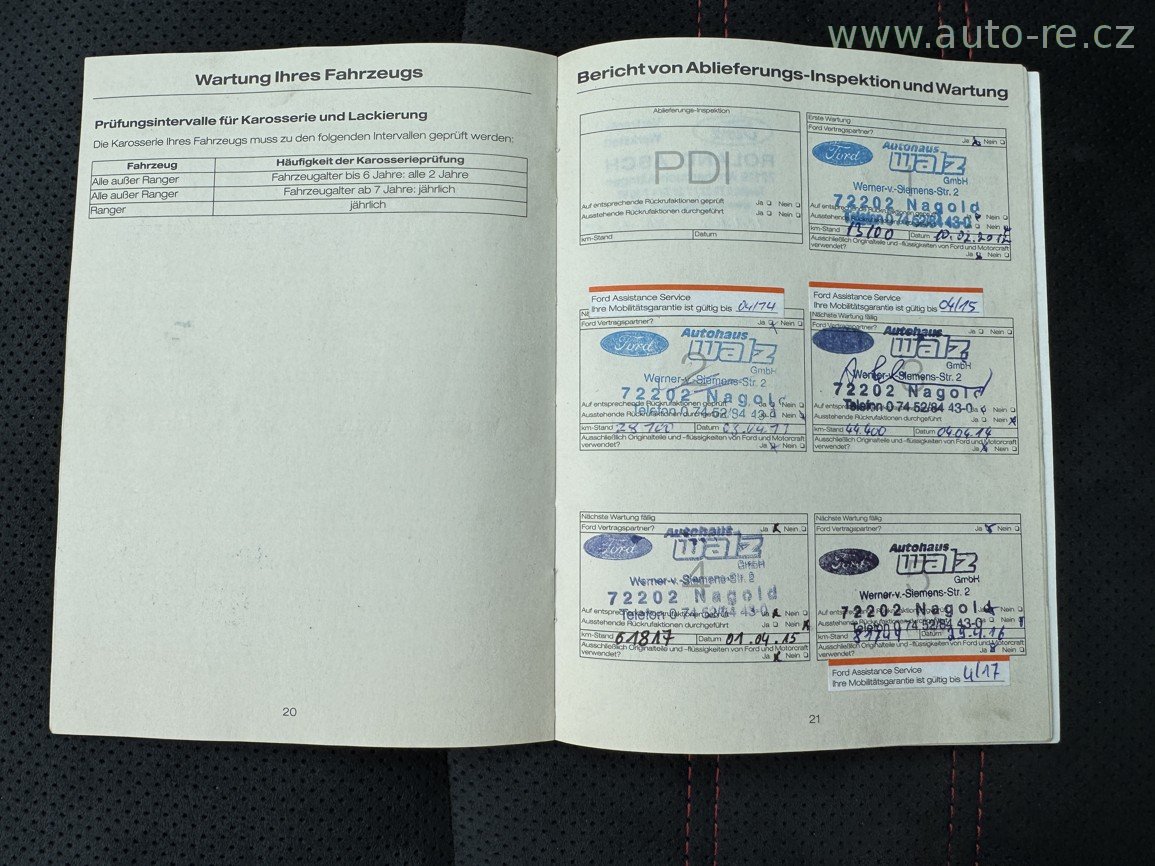 www.auto-re.cz
Wartung Ihres Fahrzeugs
Prüfungsintervalle für Karosserie und Lackierung
Die Karosserie Ihres Fahrzeugs muss zu den folgenden Intervallen geprüft werden:
Fahrzeug Häufigkeit der Karosserieprüfung
Alle außer Ranger Fahrzeugalter bis 6 Jahre: alle 2 Jahre
Alle außer Ranger Fahrzeugalter ab 7 Jahre: jährlich
Ranger jährlich
20
Bericht von Ablieferungs-Inspektion und Wartung
Ablieferungs-Inspektion
PDI
Auf entsprechende Rückrufaktionen geprüft Ja Nein
Ausstehende Rückrufaktionen durchgeführt Ja Nein
km-Stand Datum
Erste Wartung
Ford Vertragspartner? Ja Nein
Ford Autohaus
Walz
GmbH
Werner-v.-Siemens-Str. 2
72202 Nagold
Telefon 0 74 52/84 43-0
km-Stand 13100 Datum 10.02.2012
Ausschließlich Originalteile und -flüssigkeiten von Ford und Motorcraft
verwendet? Ja Nein
Ford Assistance Service
Ihre Mobilitätsgarantie ist gültig bis 04/14
Ford Vertragspartner? Ja Nein
Ford Autohaus
Walz
GmbH
2
Werner-v.-Siemens-Str. 2
72202 Nagold
Auf entsprechende Rückrufaktionen geprüft Ja Nein
Telefon 0 74 52/84 43-0
Ausstehende Rückrufaktionen durchgeführt Ja Nein
km-Stand Datum
Ausschließlich Originalteile und -flüssigkeiten von Ford und Motorcraft
verwendet? Ja Nein
Ford Assistance Service
Ihre Mobilitätsgarantie ist gültig bis 04/15
Nächste Wartung fällig
Ford Vertragspartner? Ja Nein
Autohaus
Walz
GmbH
Werner-v.-Siemens-Str. 2
72202 Nagold
Telefon 0 74 52/84 43-0
Ausstehende Rückrufaktionen durchgeführt Ja Nein
km-Stand 44400 Datum 04.04.14
Ausschließlich Originalteile und -flüssigkeiten von Ford und Motorcraft
verwendet? Ja Nein
Nächste Wartung fällig
Ford Vertragspartner? Ja Nein
Ford Autohaus
Walz
GmbH
4
Werner-v.-Siemens-Str. 2
72202 Nagold
Auf entsprechende Rückrufaktionen geprüft Ja Nein
Telefon 0 74 52/84 43-0
Ausstehende Rückrufaktionen durchgeführt Ja Nein
km-Stand 61817 Datum 01.04.15
Ausschließlich Originalteile und -flüssigkeiten von Ford und Motorcraft
verwendet? Ja Nein
Nächste Wartung fällig
Ford Vertragspartner? Ja Nein
Ford Autohaus
Walz
GmbH
5
Werner-v.-Siemens-Str. 2
72202 Nagold
Telefon 0 74 52/84 43-0
km-Stand Datum
Ausschließlich Originalteile und -flüssigkeiten von Ford und Motorcraft
verwendet? Ja Nein
Ford Assistance Service
Ihre Mobilitätsgarantie ist gültig bis 4/17
21